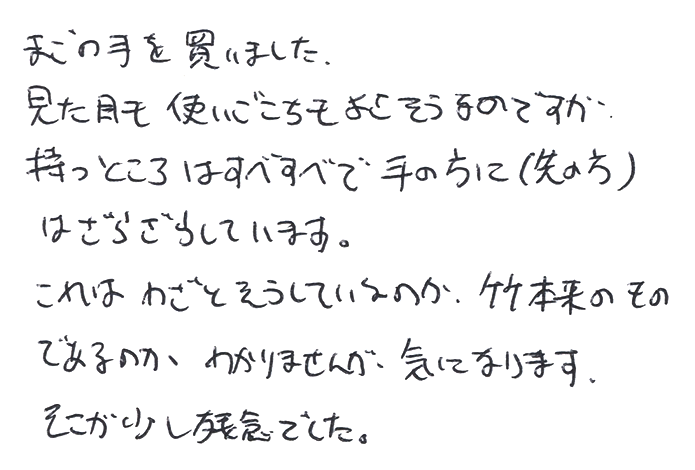 まごの手を買いました.
見た目も使いごこちもよさそうなのですが、
持つところはすべすべで手の方に(先の方)
はざらざらしています。
これはわざとそうしているのか、竹本来のもの
であるのか、わかりませんが、気になります.
そこが少し残念でした。